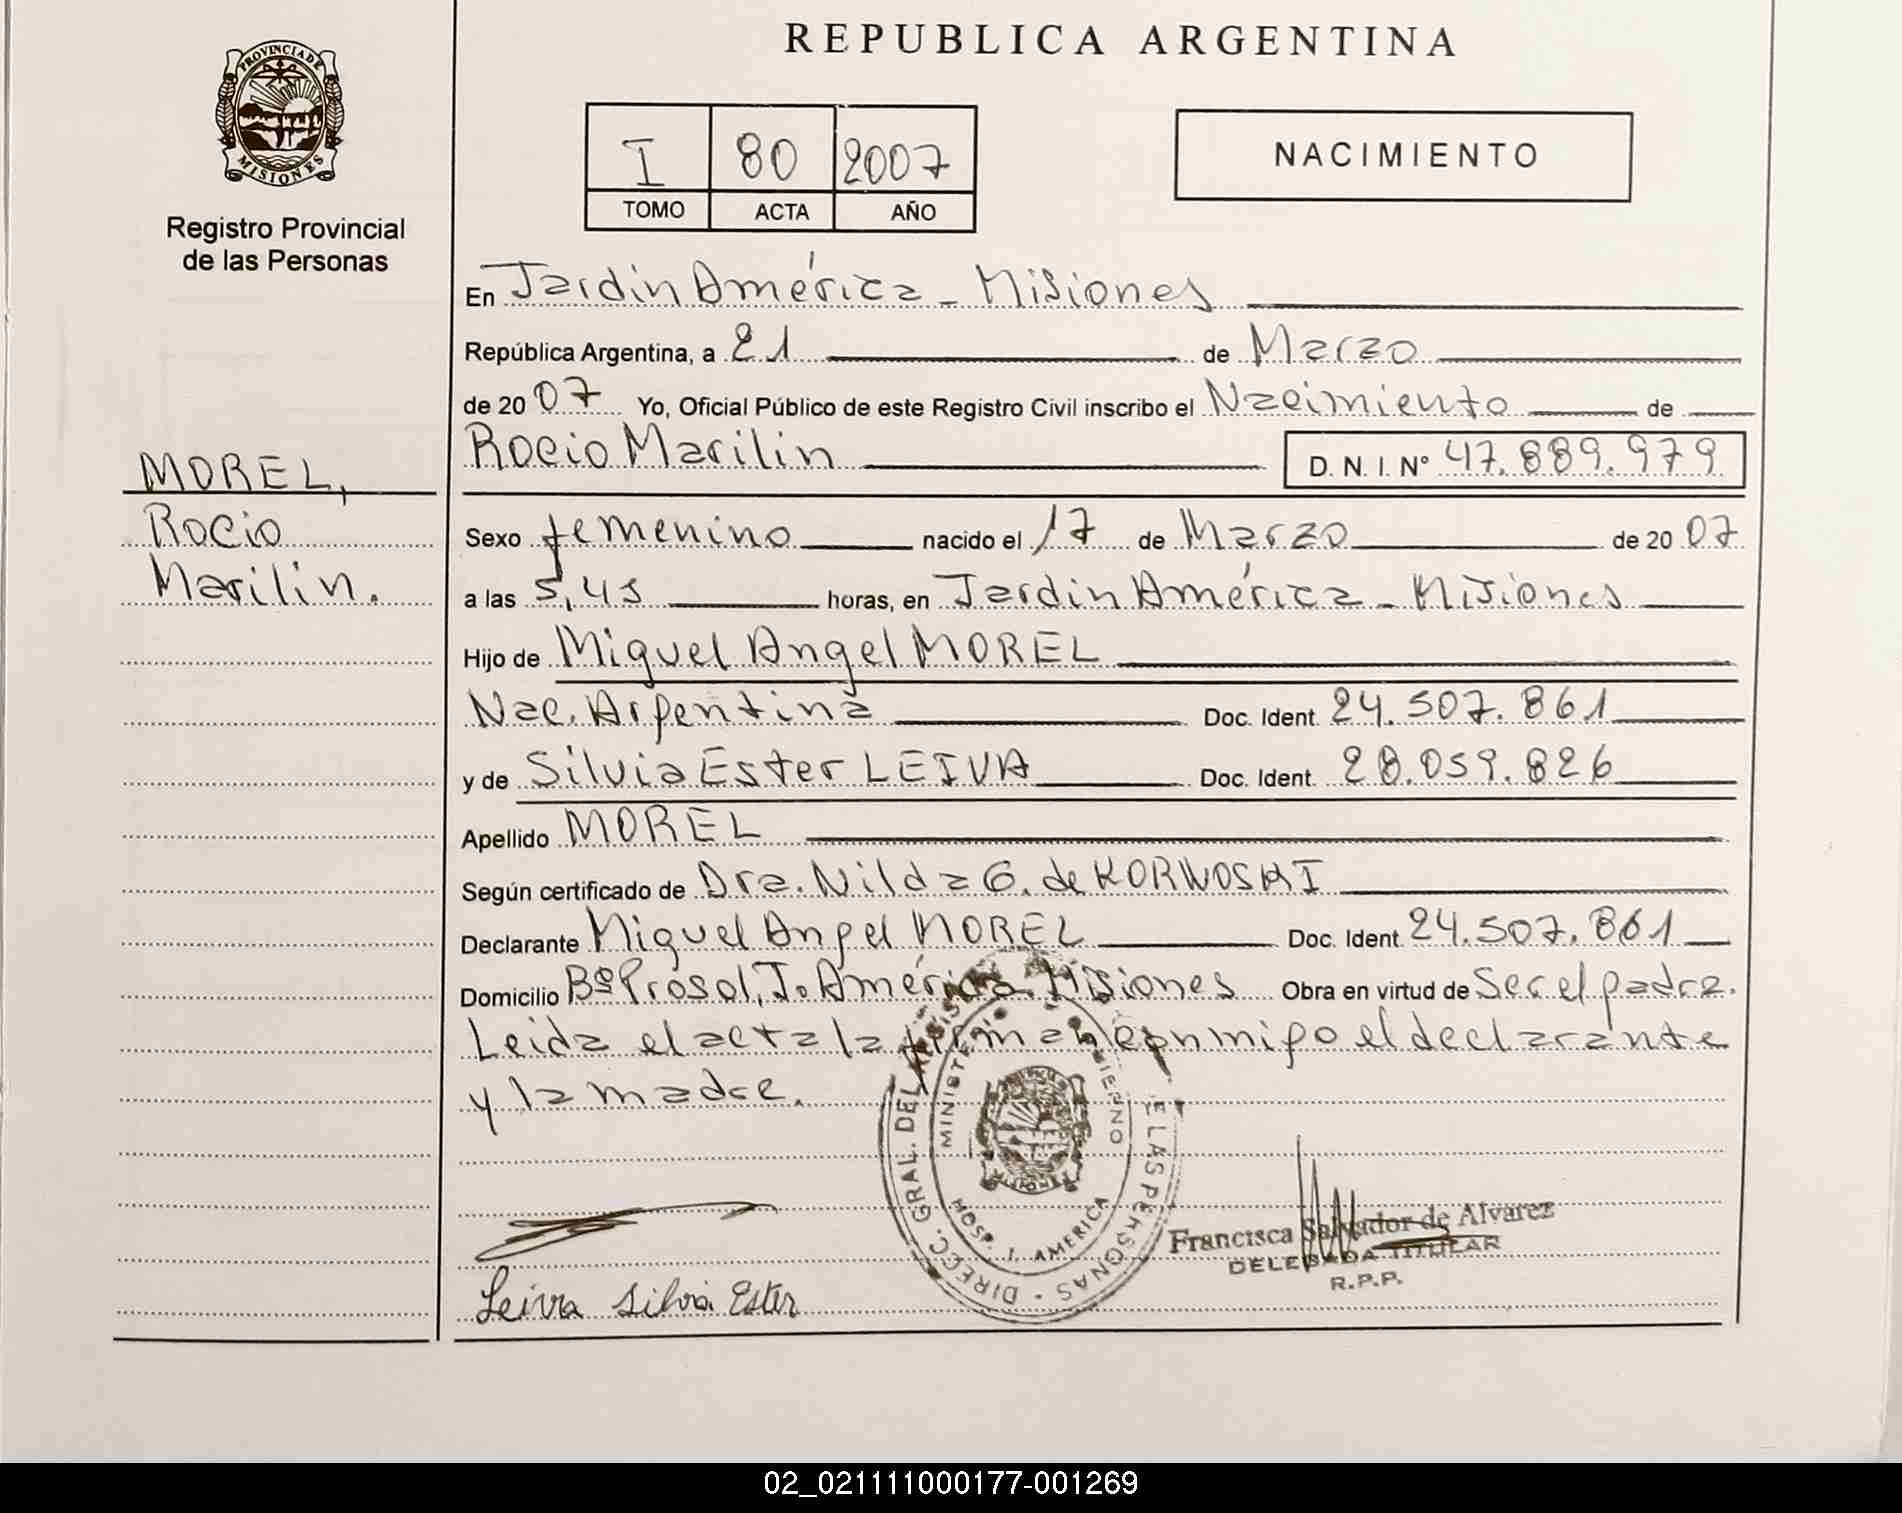 REPUBLICA ARGENTINA
PROVINCIA DE
MISIONES
Registro Provincial
de las Personas
I 80 2007
TOMO ACTA AÑO
NACIMIENTO
En Jardín América - Misiones
República Argentina, a 21 de Marzo
de 2007 Yo, Oficial Público de este Registro Civil inscribo el Nacimiento de
Rocio Marilin D. N. I. Nº 47.889.979
MOREL,
Rocio
Marilin.
Sexo femenino nacido el 17 de Marzo de 2007
a las 5,45 horas, en Jardin América - Misiones
Hijo de Miguel Angel MOREL
Nac. Argentina Doc. Ident. 24.507.861
y de Silvia Ester LEIVA Doc. Ident. 28.059.826
Apellido MOREL
Según certificado de Dra. Nilda G. de KORNOSKI
Declarante Miguel Angel MOREL Doc. Ident. 24.507.861
Domicilio Bº Prosol, J. América Misiones Obra en virtud de Ser el padre.
Leida el acta la firman conmigo el declarante
y la madre.
DIRECC. GRAL. DEL DE LAS PERSONAS
MINISTE GOBIERNO
HOSP. J. AMERICA
Leiva Silvia Ester
Francisca Salvador de Alvarez
DELEGADA TITULAR
R.P.P.
02_021111000177-001269